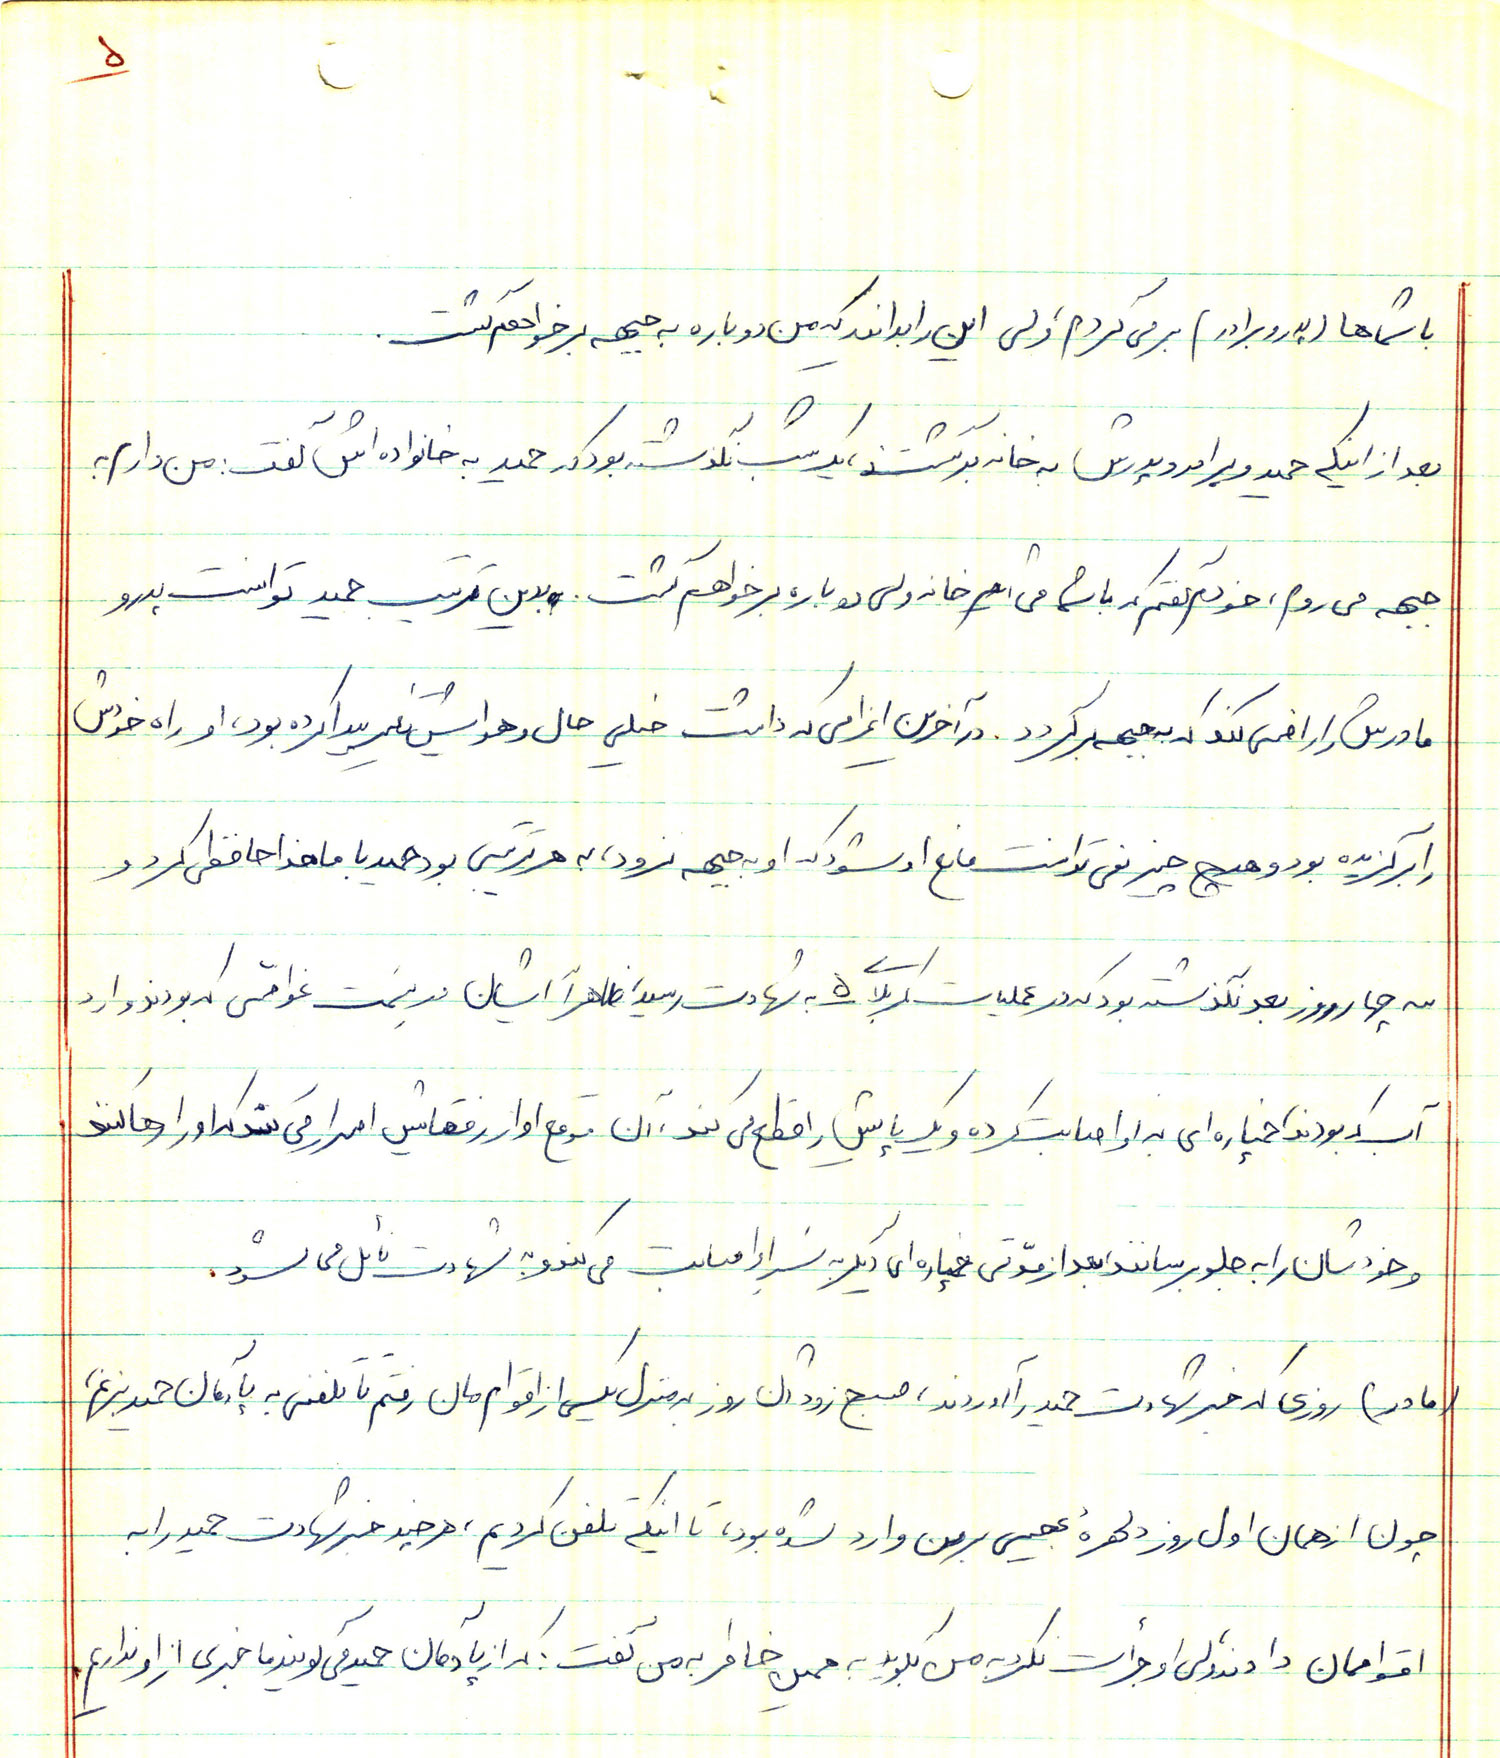 ۵
با شماها (پدر و برادر) بر می گردم، ولی این را بدانید که من دوباره به جبهه بر خواهم گشت.
بعد از اینکه حمید و برادر و پدرش به خانه برگشتند، یک شب نگذشته بود که حمید به خانواده اش گفت: من دارم به
جبهه می روم، خودم گفتم که با شما می آیم خانه ولی دوباره بر خواهم گشت. بدین ترتیب حمید توانست پدر و
مادرش را راضی کند که به جبهه برگردد. در آخرین اعزامی که داشت خیلی حال و هوایش تغییر پیدا کرده بود، او راه خودش
را برگزیده بود و هیچ چیز نمی توانست مانع او شود که او به جبهه نرود، به هر ترتیبی بود حمید با ما خداحافظی کرد و
سه چهار روز بعد نگذشته بود که در عملیات کربلای ۵ به شهادت رسید، ظاهراً ایشان در قسمت غواصی که بودند وارد
آب که بودند، خمپاره ای به او اصابت کرده و یک پایش را قطع می کند، آن موقع او از رفقایش اصرار می کند که او را رها کنند
و خودشان را به جلو برسانند، بعد از مدّتی خمپاره ای دیگر به سر او اصابت می کند و به شهادت نائل می شود.
(مادر) روزی که خبر شهادت حمید را آوردند، صبح زود آن روز به منزل یکی از اقوام مان رفتم تا تلفنی به پادگان حمید بزنم،
چون از همان اول روز دلهرهٔ عجیبی بر من وارد شده بود، تا اینکه تلفن کردیم، هر چند خبر شهادت حمید را به
اقوام مان دادند، ولی او جرأت نکرد به من بگوید به همین خاطر به من گفت: که از پادگان حمید می گویند ما خبری از او نداریم.